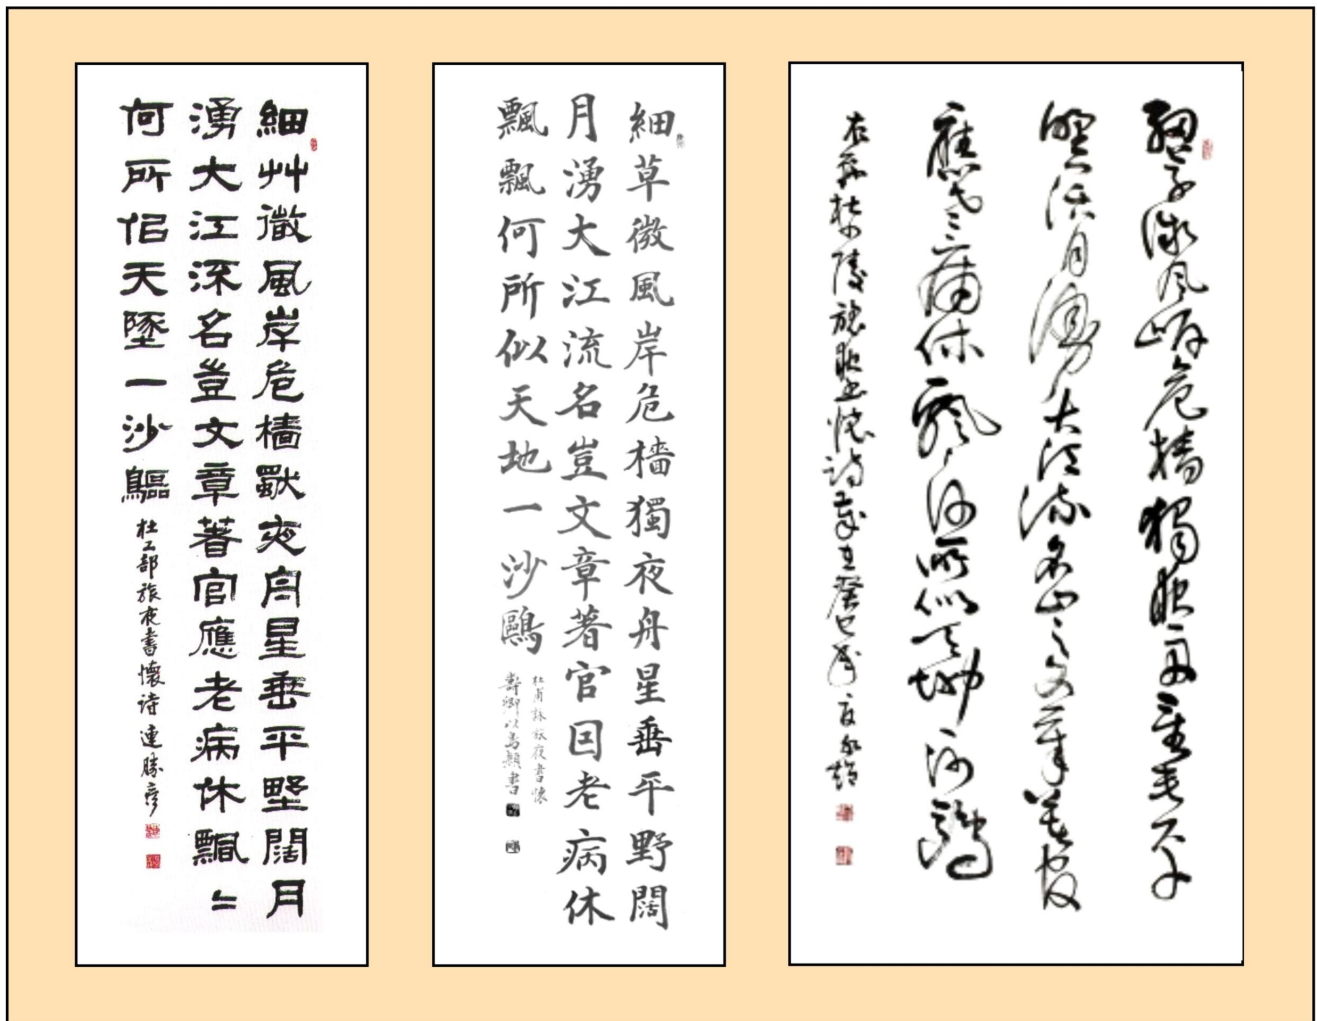 細艸微風岸危檣獨夜舟星垂平壄闊月
湧大江流名豈文章著官應老病休飄〻
何所佀天墬一沙鷗
杜工部旅夜書懷詩 連勝彥
細草微風岸危檣獨夜舟星垂平野闊
月湧大江流名豈文章著官因老病休
飄飄何所似天地一沙鷗
杜甫詠旅夜書懷
細草微風岸危檣獨夜舟星垂平
野闊月湧大江流名豈文章著官
應老病休飄〻何所似天地一沙鷗
杜少陵旅夜書懷詩歲在癸巳